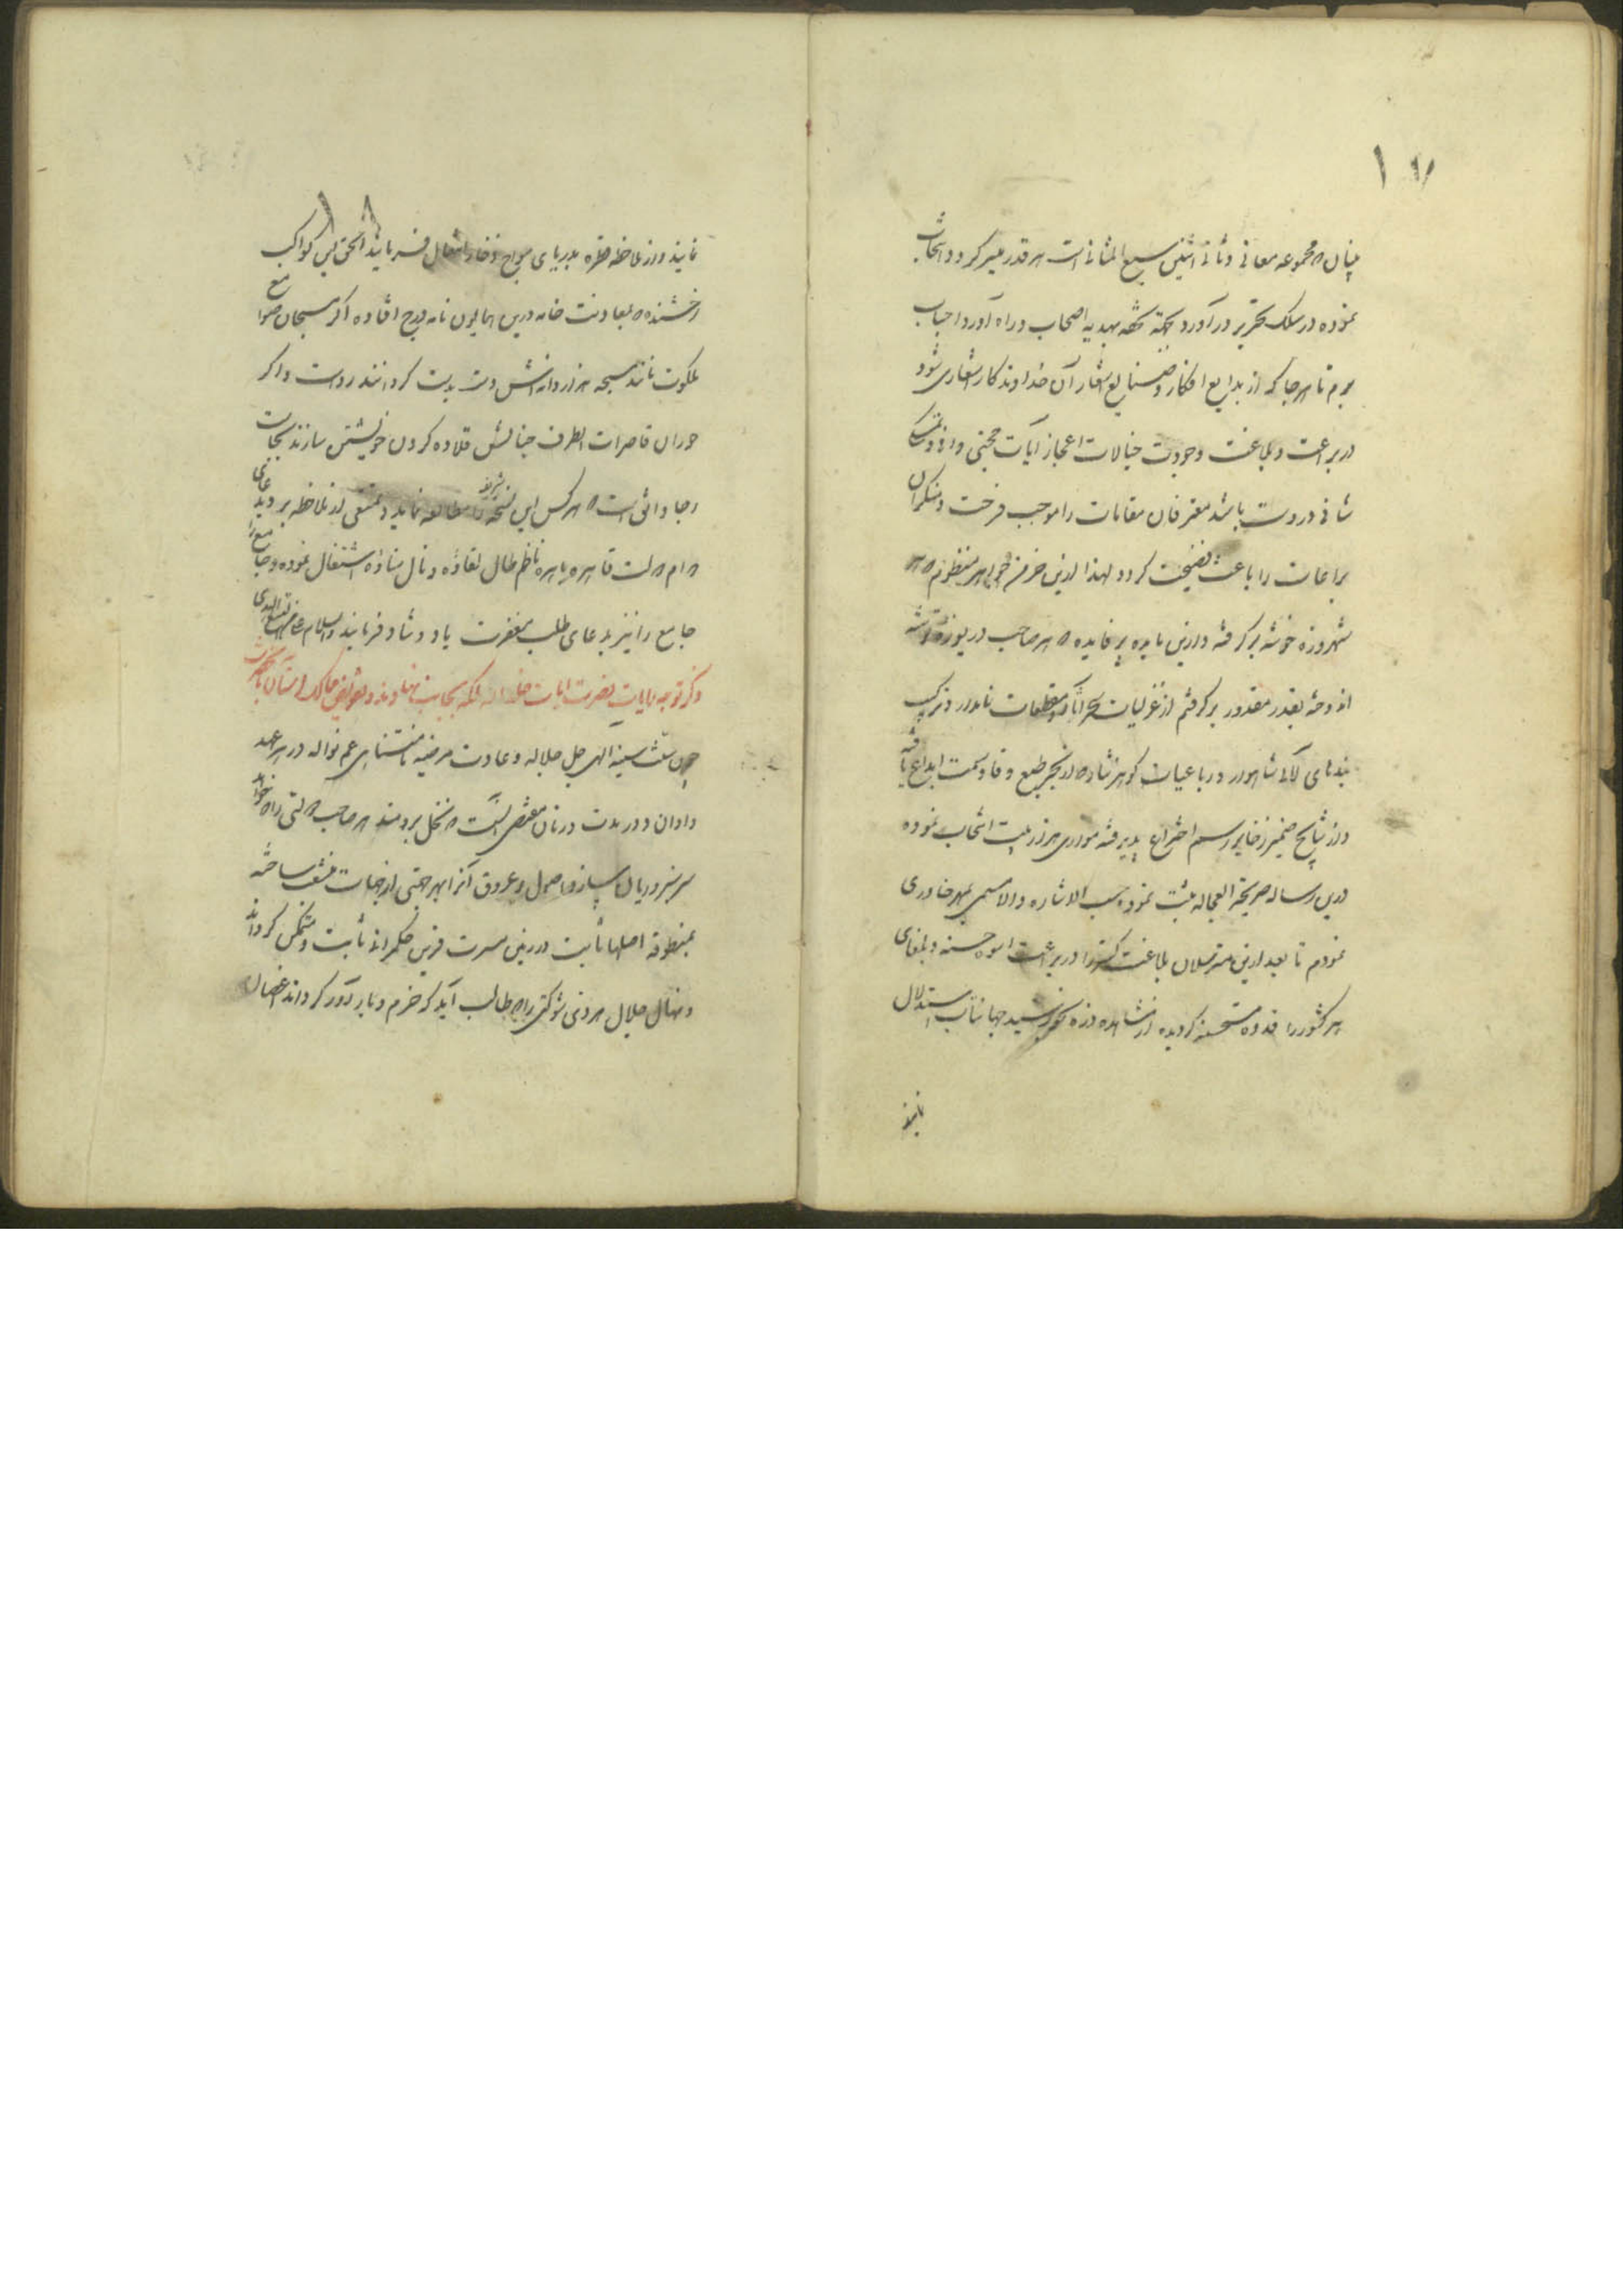 که مجموعه معانی و ثانی اثنین سبع المثانی است هر قدر میسر کردد انتخاب
نموده در سلک تحریر درآورد تحفه بهدیه اصحاب و راه آورد احباب
برم تا هر جا که از بدایع افکار و صنایع اشعار آن خداوند کار اشعاری شود
در براعت و بلاغت و جودت خیالات اعجاز آیات حجتی وافی و تمسکی
شافی در دست باشد معترفان مقامات را موجب فرحت و منکران
را باعث فضیحت کردد لهذا ازین خرمن جواهر منظوم که هر
شهروزه خوشه بر کرفته و ازین مایده پر فایده که هر صاحب دریوزه توشه
اندوخته بقدر مقدور برکرفتم از غزلیات سحر آثار و مقطعات نامدار و ترکیب
بندهای لآلی شاهوار و رباعیات کوهر نثار که از بحر طبع وقاد سمت ابداع یافته
و از نتایج ضمیر زخایر رسم اختراع پذیرفته موازی هزار بیت انتخاب نموده
درین رساله العجاله ثبت نموده حسب الاشاره والا بمهر خاوری
نمودم تا بعد ازین مترسلان بلاغت کستر را در براعت اسوه حسنه و بلغای
هر کشور را قدوه مستحسنه کردیده از مشاهده ذره بخورشید جهانتاب استدلال
نمایند
نمایند و از ملاحظه قطره بدریای مواج زخار انتقال فرمایند الحق این کواکب
رخشنده که بمعاونت خامه درین همایون نامه درج افتاده اکر مسبحان صوامع
ملکوت مانند سبحه هزار دانه اش دست بدست کردانند رواست و اکر
حوران قاصرات الطرف جنانش قلاده کردن خویشتن سازند بجاست
رجا واثق است که هر کس این نسخه شریفه را مطالعه نماید و تمتعی از ملاحظه بردارد بدعای
دوام دولت قاهره باهره ناظم طال بقاؤه و نال مناؤه اشتغال نموده و جامع را
جامع را نیز بدعای طلب مغفرت یاد و شاد فرمایند والسلام علی من اتبع الهدی
ذکر توجه رایات نصرت آیات خلد الله ملکه بجانب نهاوند و
چون سنت سنیه الهی جل جلاله و عادت مرضیه نامتناهی عم نواله در هر عهد
و اوان و در مدت و زمان مقتضی آنست که نخل برومند هر صاحب دولتی را که خواهد
سرسبز و ریان سازد اصول و عروق آنرا بهر جهتی از جهات منشعب ساخته
بمنطوقه اصلها ثابت در زمین مسرت قرین حکمرانی ثابت و متمکن کرداند
و نهال جلال هر ذی شوکتی را که طالب آید که خرم و بارآور کرداند اغصان